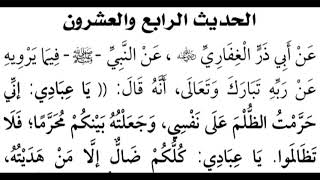 الحديث الرابع والعشرون
عَنْ أَبِي ذَرٍّ الْغِفَارِيِّ ﵁، عَنْ النَّبِيِّ -ﷺ- فِيمَا يَرْوِيهِ
عَنْ رَبِّهِ تَبَارَكَ وَتَعَالَى، أَنَّهُ قَالَ: (( يَا عِبَادِي: إنِّي
حَرَّمْتُ الظُّلْمَ عَلَى نَفْسِي، وَجَعَلْتُهُ بَيْنَكُمْ مُحَرَّمًا؛ فَلَا
تَظَالَمُوا. يَا عِبَادِي: كُلُّكُمْ ضَالٌّ إلَّا مَنْ هَدَيْتُهُ،